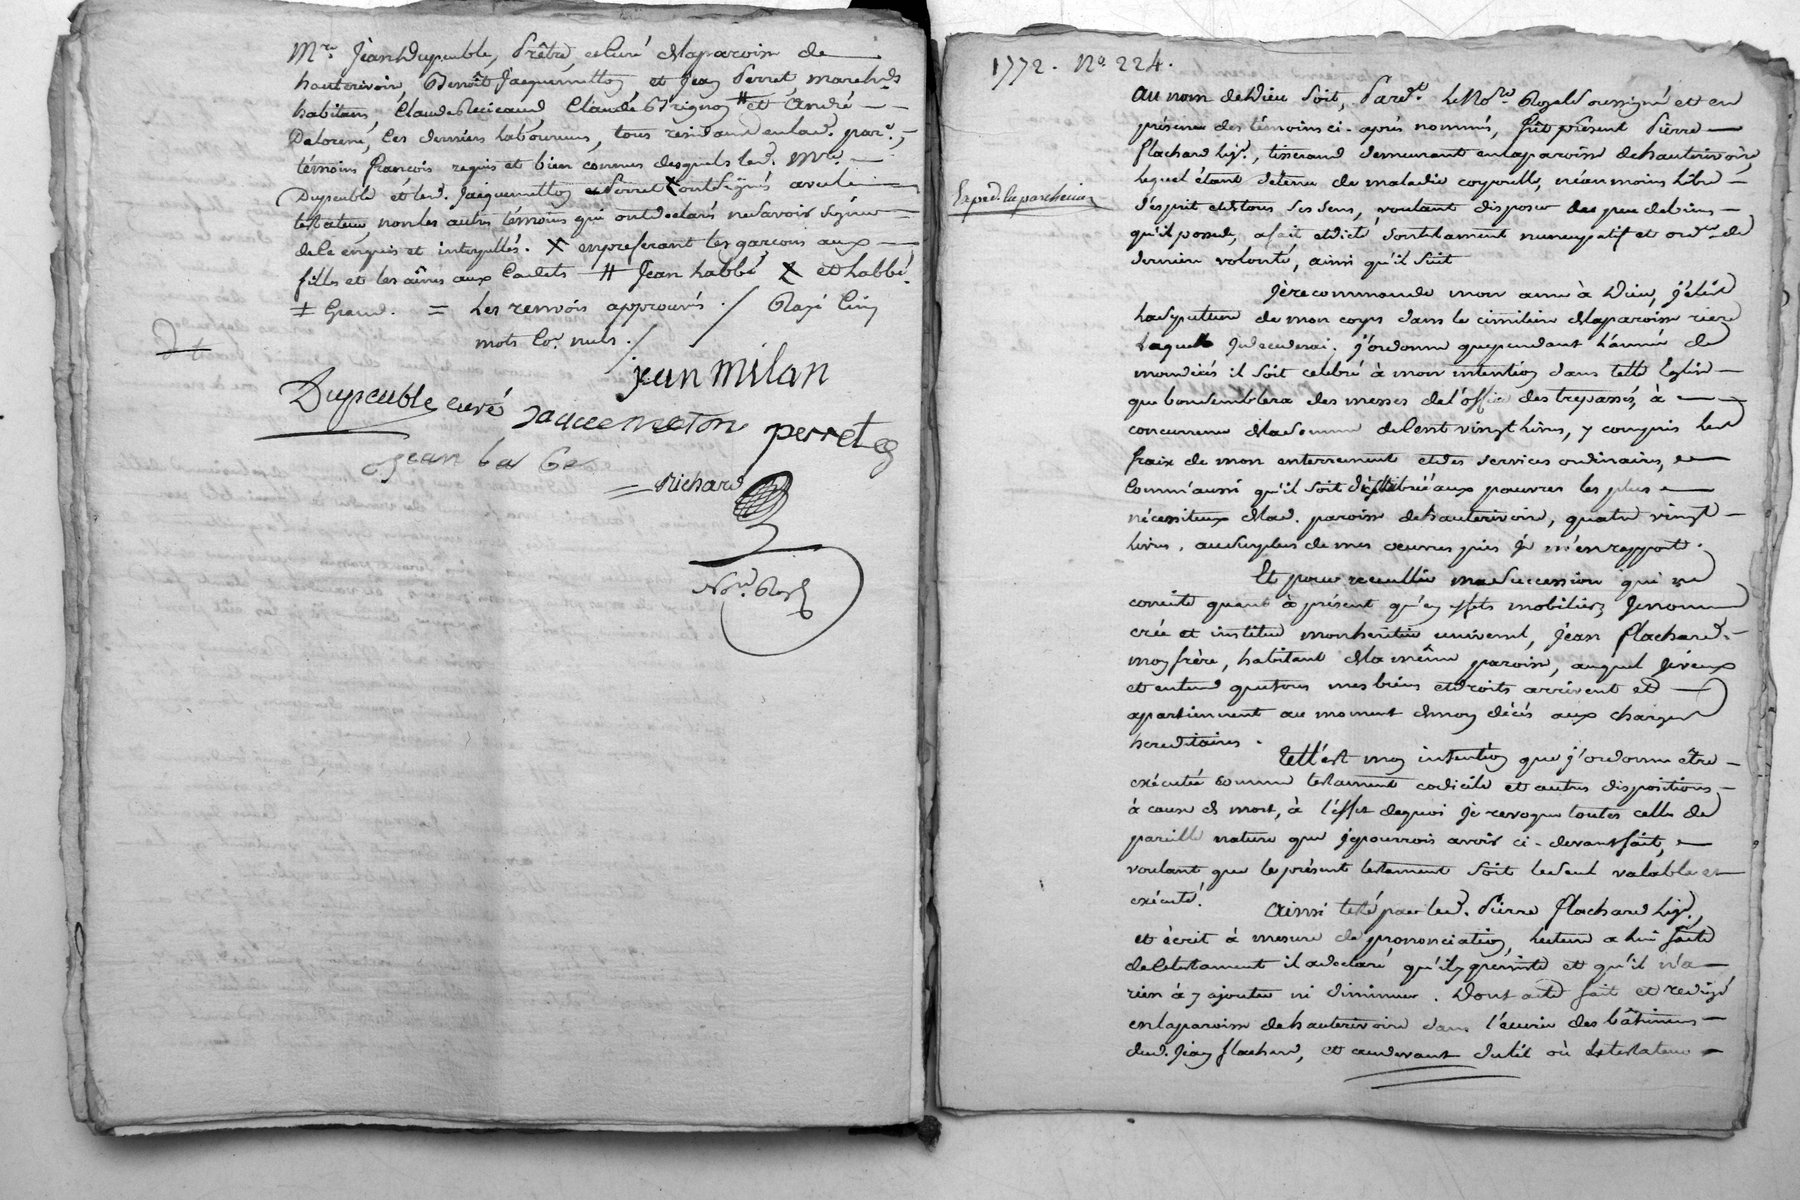 Mre Jean Dupeuble, Prêtre, et Curé de la paroisse de
hauterivoire, Benoît Jacquemetton et Jean Perret marchds
habitans, Claude Claude Brignon # et André
Delorme, les derniers laboureurs, tous residans en lad. parse,
témoins françois requis et bien connus desquels led. Mre
Dupeuble et led. Jacquemetton et Perret X ont signés avec le
testateur, non les autres témoins qui ont declarés ne savoir signer
de ce enquis et interpellés. X en preferant les garçons aux
filles et les aînés aux Cadets # Jean habbé X et habbé
± Grand. = Les renvois approuvés ./ Rayé Cinq
mots Co. nuls ./
jean milan
Dupeuble curé jaquemeton perret
jean la be
Richard
Nore Royal
1772. No 224.
Au nom de Dieu soit, Pardt le Nore Royal soussigné et en
présence des témoins ci-après nommés, fût présent Pierre
flachard , tisserand demeurant en la paroisse de hauterivoire
Exped. en parchemin
lequel étant detenu de maladie corporelle, néanmoins libre
d'esprit et de tous ses sens, voulant disposer du peu de biens
qu'il possede, a fait et dicté son testament nuncupatif et ordce de
derniere volonté, ainsi qu'il suit
Je recommande mon ame à Dieu, j'élis
la sepulture de mon corps dans le cimetiere de la paroisse riere
laquelle je decederai. j'ordonne que pendant l'année de
mon décès il soit celebré à mon intention dans telle Eglise
que bon semblera des messes de l'office des trepassés, à
concurrence de la somme de Cent vingt livres, y compris les
fraix de mon enterrement et des services ordinaires,
Comm'aussi qu'il soit distribué aux pauvres les plus
nécessiteux de lad. paroisse de hauterivoire, quatre vingt
livres. au surplus de mes oeuvres pies je m'en rapporte.
Et pour recueillir ma succession qui ne
consiste quant à présent qu'en effets mobiliers, je nomme
crée et institue mon heritier universel, Jean flachard
mon frère, habitant de la même paroisse, auquel je veux
et entend que tous mes biens et droits arrivent et
apartiennent au moment de mon décès aux charges
hereditaires.
Tell'est mon intention que j'ordonne être
exécutée comme testament codicile et autres dispositions
à cause de mort, à l'effet de quoi je revoque toutes celles de
pareille nature que je pourrois avoir ci-devant fait,
voulant que le présent testament soit le seul valable et
exécuté.
Ainsi testé par led. Pierre flachard
et écrit à mesure de prononciation, lecture a lui faite
de ce testament il a declaré qu'il y persiste et qu'il n'a
rien à y ajouter ni diminuer. Dont acte fait et redigé
en la paroisse de hauterivoire dans l'écurie des bâtimens
dud. Jean flachard, et audevant du lit où le testateur